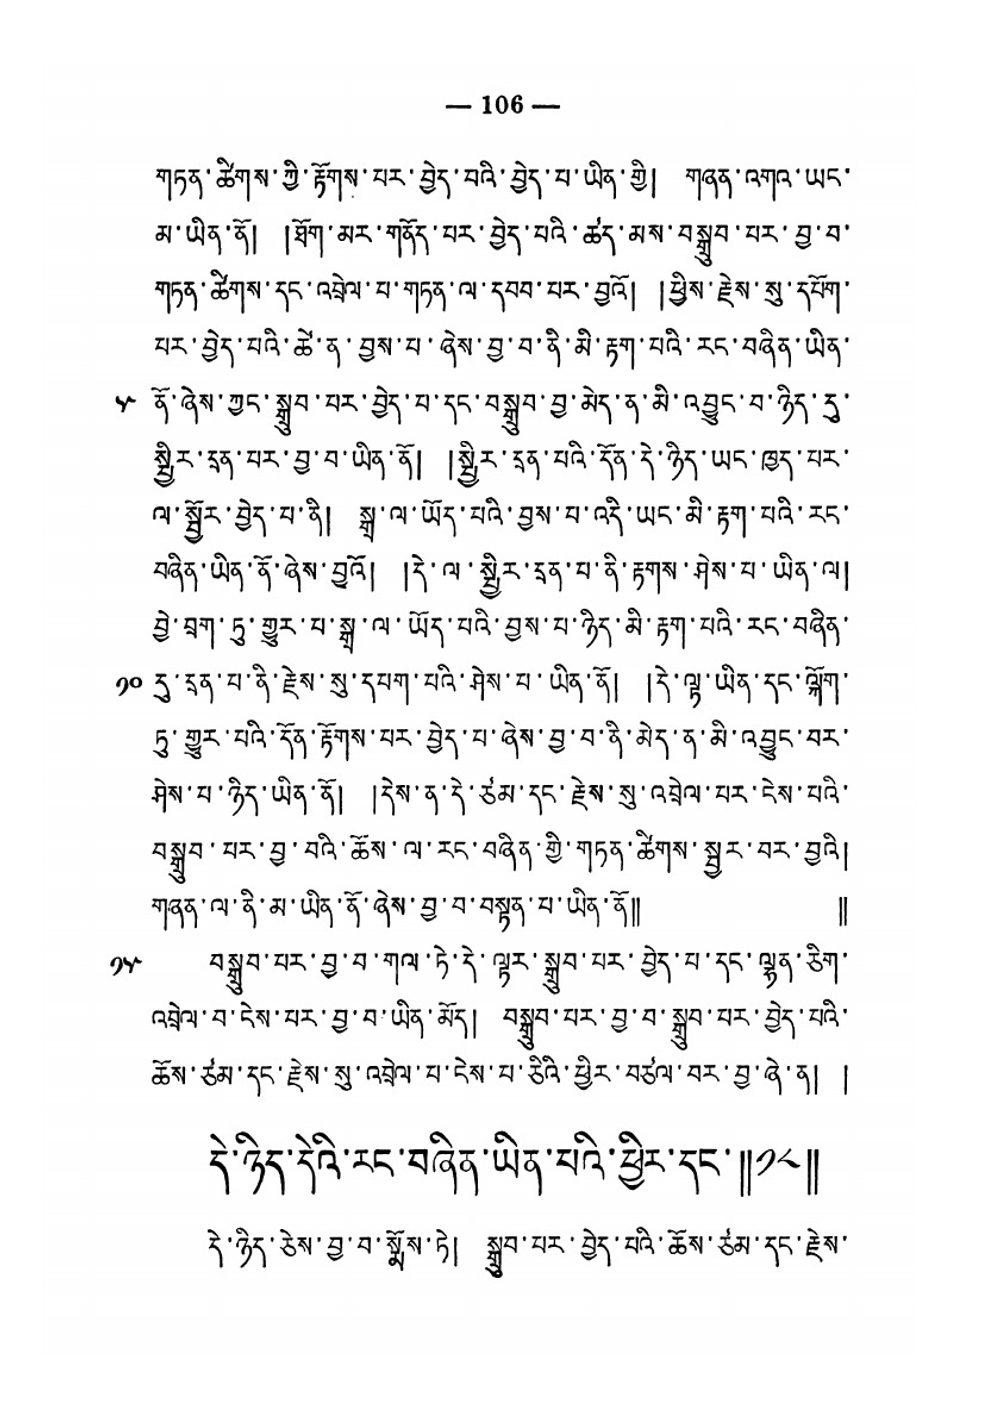 — 106 —
གཏན་ཚིགས་ཀྱི་རྟོགས་པར་བྱེད་པའི་བྱེད་པ་ཡིན་གྱི། གཞན་འགའ་ཡང་
མ་ཡིན་ནོ། །ཐོག་མར་གནོད་པར་བྱེད་པའི་ཚད་མས་བསྒྲུབ་པར་བྱ་བ་
གཏན་ཚིགས་དང་འབྲེལ་པ་གཏན་ལ་དབབ་པར་བྱའོ། །ཕྱིས་རྗེས་སུ་དཔོག་
པར་བྱེད་པའི་ཚེ་ན་བྱས་པ་ཞེས་བྱ་བ་ནི་མི་རྟག་པའི་རང་བཞིན་ཡིན་
༥ ནོ་ཞེས་ཀྱང་སྒྲུབ་པར་བྱེད་པ་དང་བསྒྲུབ་བྱ་མེད་ན་མི་འབྱུང་བ་ཉིད་དུ་
སྤྱིར་དྲན་པར་བྱ་བ་ཡིན་ནོ། །སྤྱིར་དྲན་པའི་དོན་དེ་ཉིད་ཡང་ཁྱད་པར་
ལ་སྦྱོར་བྱེད་པ་ནི། སྒྲ་ལ་ཡོད་པའི་བྱས་པ་འདི་ཡང་མི་རྟག་པའི་རང་
བཞིན་ཡིན་ནོ་ཞེས་བྱའོ། །དེ་ལ་སྤྱིར་དྲན་པ་ནི་རྟགས་ཤེས་པ་ཡིན་ལ།
བྱེ་བྲག་ཏུ་གྱུར་པ་སྒྲ་ལ་ཡོད་པའི་བྱས་པ་ཉིད་མི་རྟག་པའི་རང་བཞིན་
༡༠ དུ་དྲན་པ་ནི་རྗེས་སུ་དཔག་པའི་ཤེས་པ་ཡིན་ནོ། །དེ་ལྟ་ཡིན་དང་ལྐོག་
ཏུ་གྱུར་པའི་དོན་རྟོགས་པར་བྱེད་པ་ཞེས་བྱ་བ་ནི་མེད་ན་མི་འབྱུང་བར་
ཤེས་པ་ཉིད་ཡིན་ནོ། །དེས་ན་དེ་ཙམ་དང་རྗེས་སུ་འབྲེལ་པར་ངེས་པའི་
བསྒྲུབ་པར་བྱ་བའི་ཆོས་ལ་རང་བཞིན་གྱི་གཏན་ཚིགས་སྦྱར་བར་བྱའི།
གཞན་ལ་ནི་མ་ཡིན་ནོ་ཞེས་བྱ་བ་བསྟན་པ་ཡིན་ནོ།། །།
༡༥ བསྒྲུབ་པར་བྱ་བ་གལ་ཏེ་དེ་ལྟར་སྒྲུབ་པར་བྱེད་པ་དང་ལྷན་ཅིག་
འབྲེལ་བ་ངེས་པར་བྱ་བ་ཡིན་མོད། བསྒྲུབ་པར་བྱ་བ་སྒྲུབ་པར་བྱེད་པའི་
ཆོས་ཙམ་དང་རྗེས་སུ་འབྲེལ་པ་ངེས་པ་ཅིའི་ཕྱིར་བཙལ་བར་བྱ་ཞེ་ན། །
དེ་ཉིད་དེའི་རང་བཞིན་ཡིན་པའི་ཕྱིར་དང་༎༡༨༎
དེ་ཉིད་ཅེས་བྱ་བ་སྨོས་ཏེ། སྒྲུབ་པར་བྱེད་པའི་ཆོས་ཙམ་དང་རྗེས་